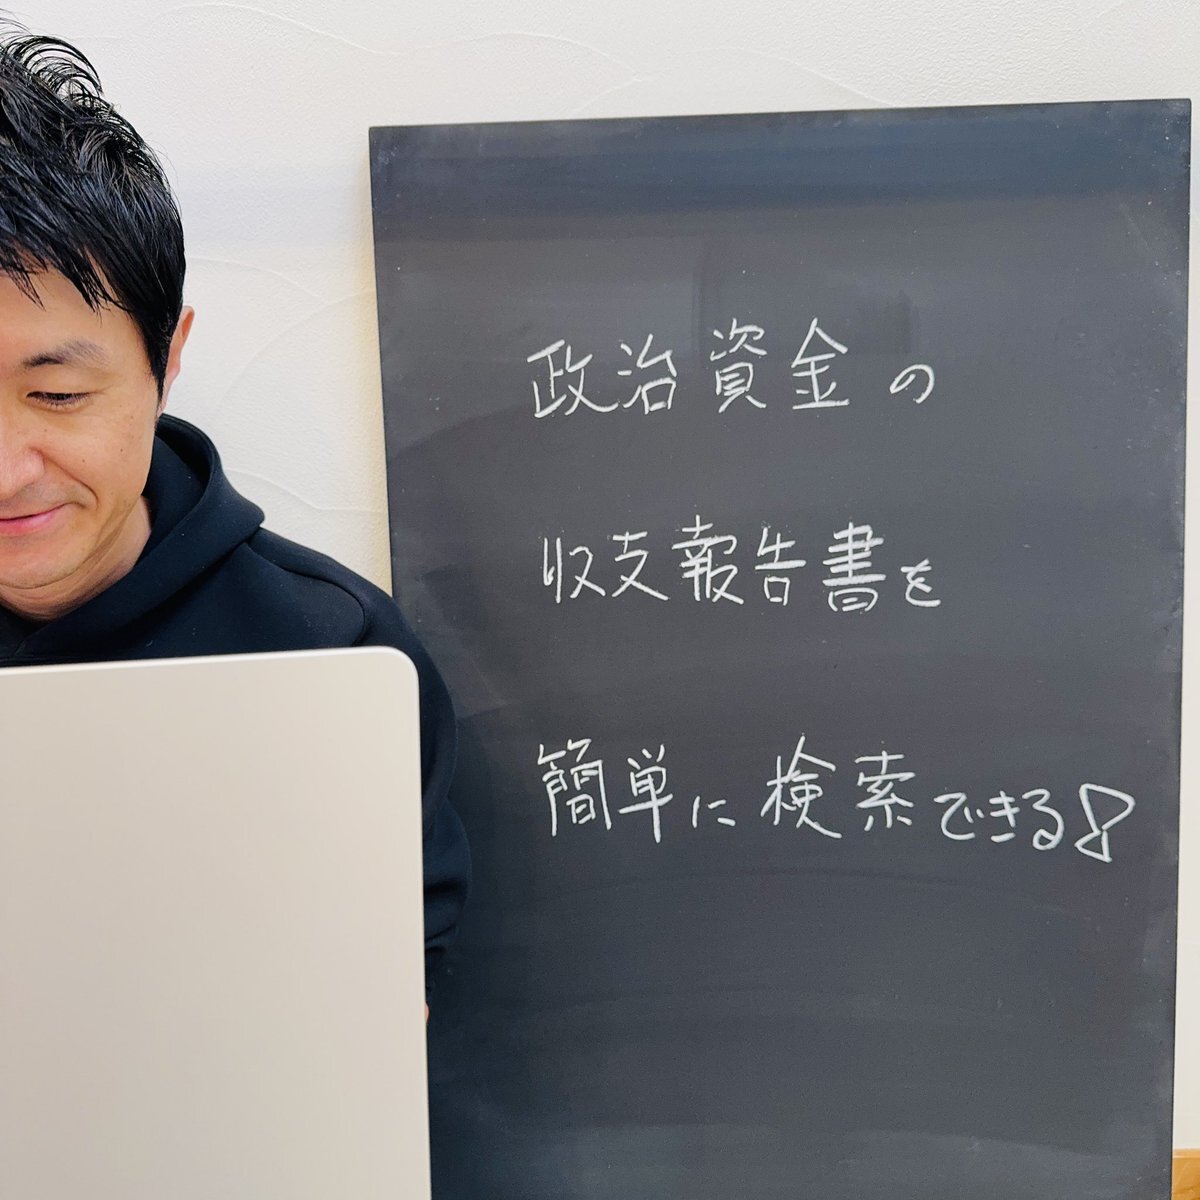 政治資金の
収支報告書を
簡単に検索できる!